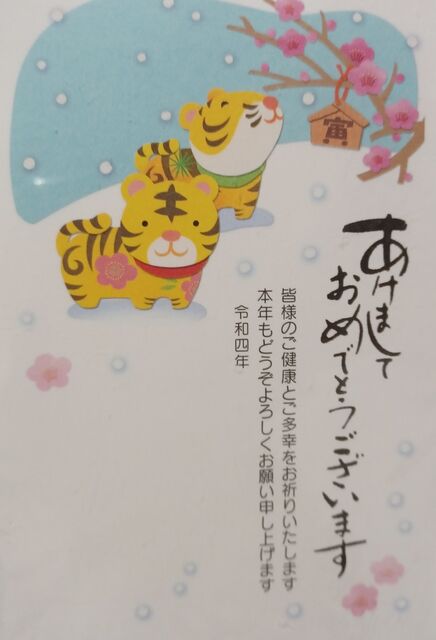 寅
あけまして
おめでとうございます
皆様のご健康とご多幸をお祈りいたします
本年もどうぞよろしくお願い申し上げます
令和四年